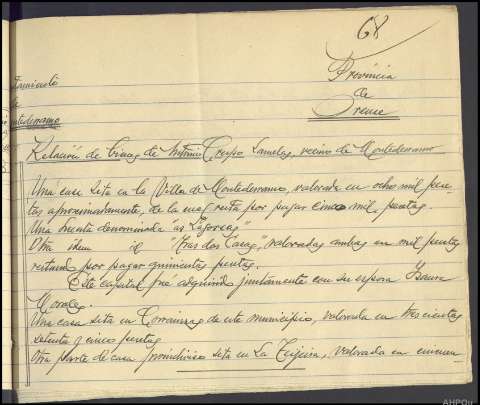 68
Provincia
de
Orense
tamiento
de
ntederramo
Relación de bienes de Antonio Crespo Lamelas, vecino de Montederramo
Una casa sita en la Villa de Montederramo, valorada en ocho mil pese-
tas aproximadamente, de la cual resta por pagar cinco mil pesetas.
Una huerta denominada as
Otra idem id "Tras dos Casas", valoradas ambas en mil pesetas
restando por pagar quinientas pesetas.
Este capital fue adquirido juntamente con su esposa Isaura
Morales.
Una casa sita en de este municipio, valorada en trescientas
setenta y cinco pesetas
Otra parte de casa proindiviso sita en La Teijeira, valorada en
AHPOu